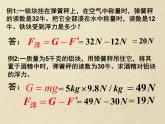 例1:一铁块挂在弹簧秤上，在空气中称量时，弹簧秤
的读数是32牛。把它浸没在水中称量时，读数是12
牛。铁块受到浮力是多少？
答：F浮=G－F′=32N－12N=20N
例2:一质量为5千克的铝块，挂在弹簧秤上，将其
置于酒精中时，弹簧秤的读数为30牛。求铝块在酒精
的浮力。
答：G=mg=5kg×9.8N/kg=49N
F浮=G－F′=49N－30N=19N